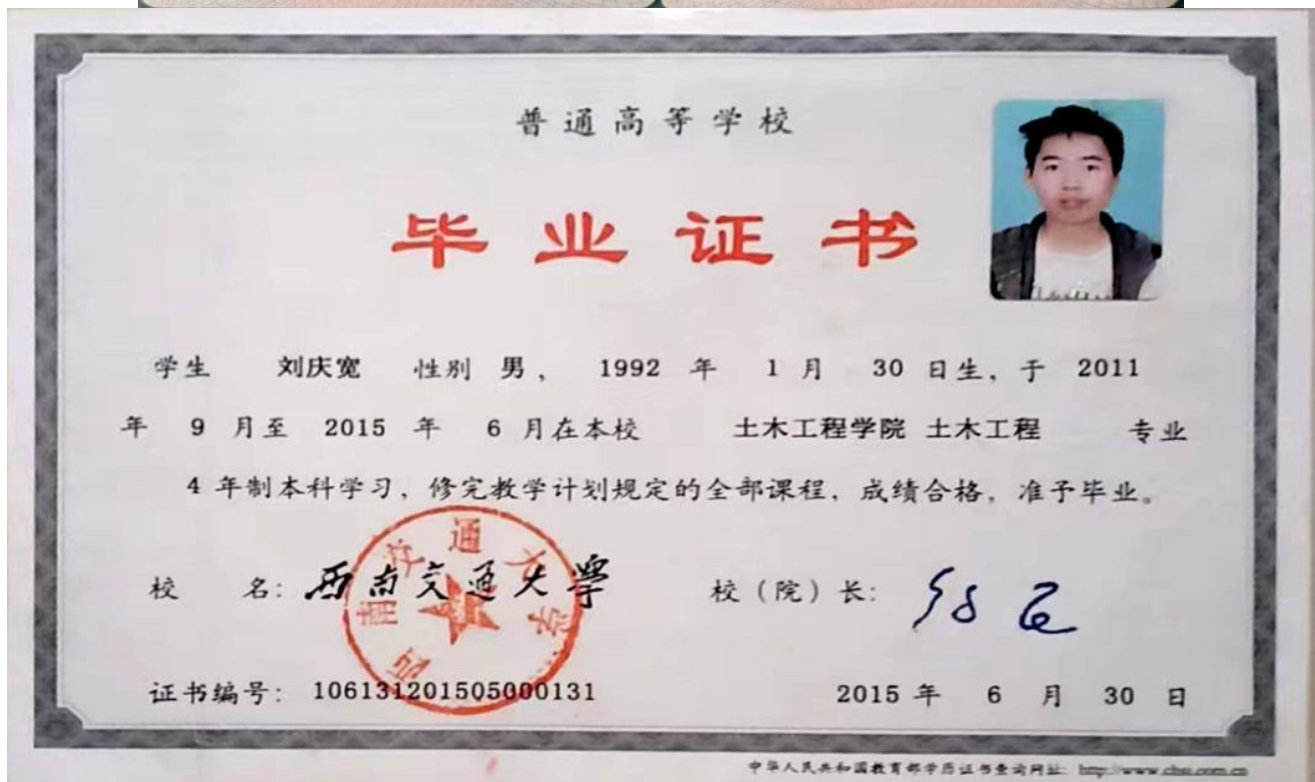 普通高等学校
毕业证书
学生 刘庆宽 性别 男， 1992 年 1 月 30 日生，于 2011
年 9 月至 2015 年 6 月在本校 土木工程学院 土木工程 专业
4 年制本科学习，修完教学计划规定的全部课程，成绩合格，准予毕业。
校 名：西南交通大學
西南交通大学
校（院）长：
证书编号：106131201505000131
2015 年 6 月 30 日
中华人民共和国教育部学历证书查询网址：http://www.chsi.com.cn